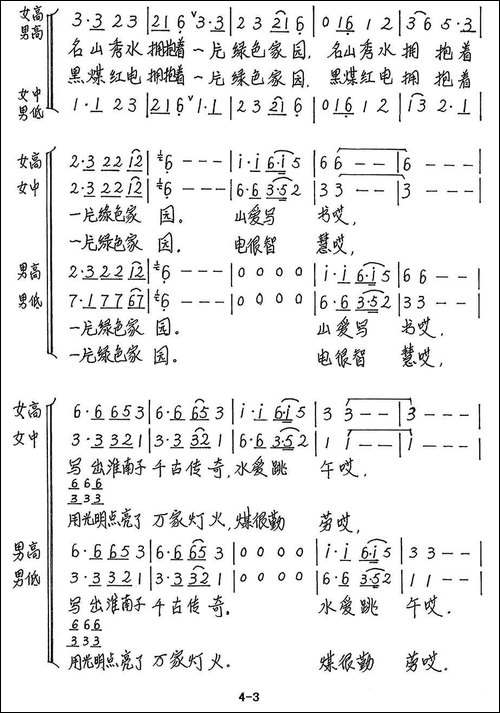 女高 男高 3·3 2 3 | 2 1 6 3·3 | 2 3 2 1 6 | 0 1 6 1 2 | 3 6 5·3
名山秀水 拥抱着 一片绿色家园, 名山秀水 拥 抱着
黑煤红电 拥抱着 一片绿色家园, 黑煤红电 拥 抱着
女中 男低 1·1 2 3 | 2 1 6 1·1 | 2 3 2 1 6 | 0 1 6 1 2 | 1 3 2·1
女高 2·3 2 2 1 2 | 6 - - - | i·i 6·i 5 | 6 6 - - | 6 - - -
女中 2·3 2 2 1 2 | 6 - - - | 6·6 3·5 2 | 3 3 - - | 3 - - -
一片绿色家 园。 山爱写 书哎,
一片绿色家 园。 电很智 慧哎,
男高 2·3 2 2 1 2 | 6 - - - | 0 0 0 0 | i·i 6·i 5 | 6 6 - -
男低 7·1 7 7 6 7 | 6 - - - | 0 0 0 0 | 6·6 3·5 2 | 3 3 - -
一片绿色家 园。 山爱写 书哎,
一片绿色家 园。 电很智 慧哎,
女高 6·6 6 5 3 | 6·6 6 5 3 | i·i 6·i 5 | 3 3 - - | 3 - - -
女中 3·3 3 2 1 | 3·3 3 2 1 | 6·6 3·5 2 | 1 i - - | i - - -
写 出淮南子 千古传 奇,水爱跳 午哎,
6 6 6
3 3 3
用光明点亮了 万家灯 火,煤很勤 劳哎,
男高 6·6 6 5 3 | 6·6 6 5 3 | 0 0 0 0 | i·i 6·i 5 | 3 3 - -
男低 3·3 3 2 1 | 3·3 3 2 1 | 0 0 0 0 | 6·6 3·5 2 | 1 1 - -
写 出淮南子 千古传 奇。 水爱跳 午哎.
6 6 6
3 3 3
用光明点亮了 万家灯 火. 煤很勤 劳哎.
4-3